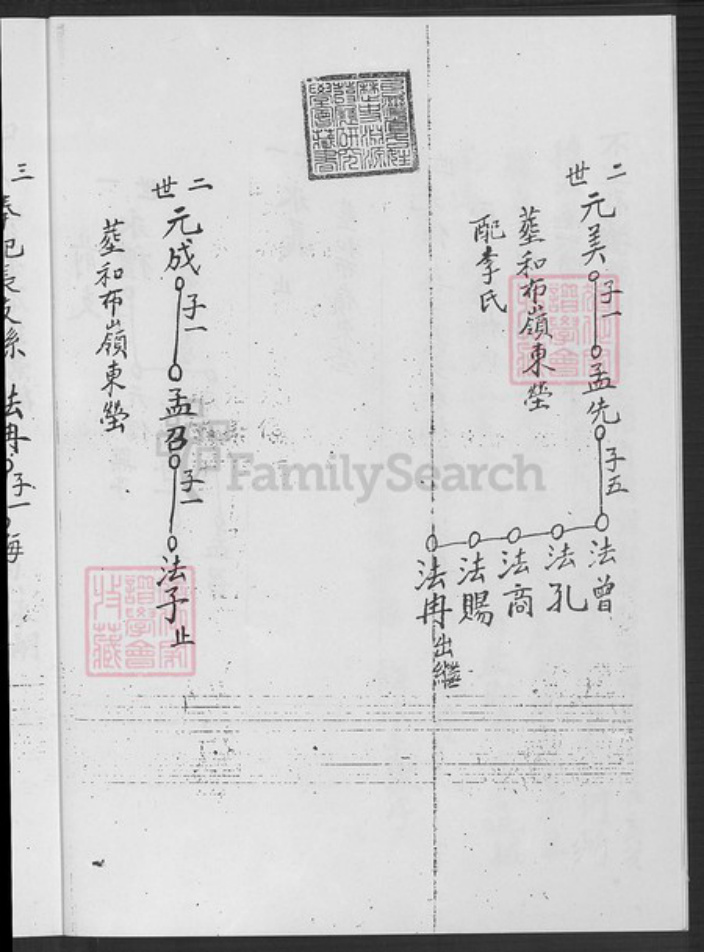 二世
元美
子一
孟先
子五
法曾
法孔
法商
法賜
法冉出繼
塟和布嶺東塋
配李氏
二世
元成
子一
孟召
子一
法子止
塟和布嶺東塋
三
法冉
子一
FamilySearch